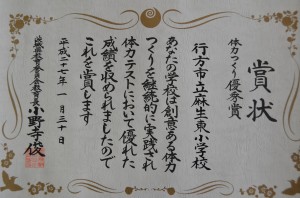 賞状
体力つくり優秀賞
行方市立麻生東小学校
あなたの学校は創意ある体力
つくりを継続的に実践され
体力テストにおいて優れた
成績を収められましたので
これを賞します
平成二十七年一月三十日
茨城県教育委員会教育長 小野寺俊